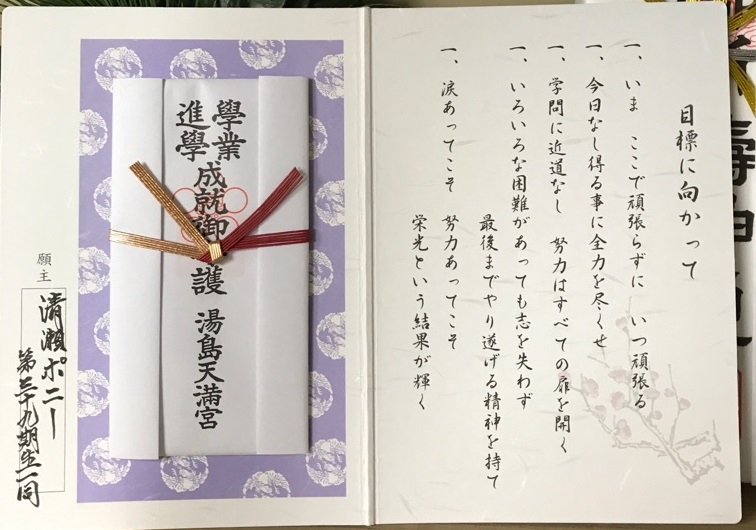 目標に向かって
一、いま ここで頑張らずに いつ頑張る
一、今日なし得る事に全力を尽くせ
一、学問に近道なし 努力はすべての扉を開く
一、いろいろな困難があっても志を失わず
最後までやり遂げる精神を持て
一、涙あってこそ 努力あってこそ
栄光という結果が輝く
學業
進學
成就御守護 湯島天満宮
願主
清瀬ポニー
第三十九期生一同